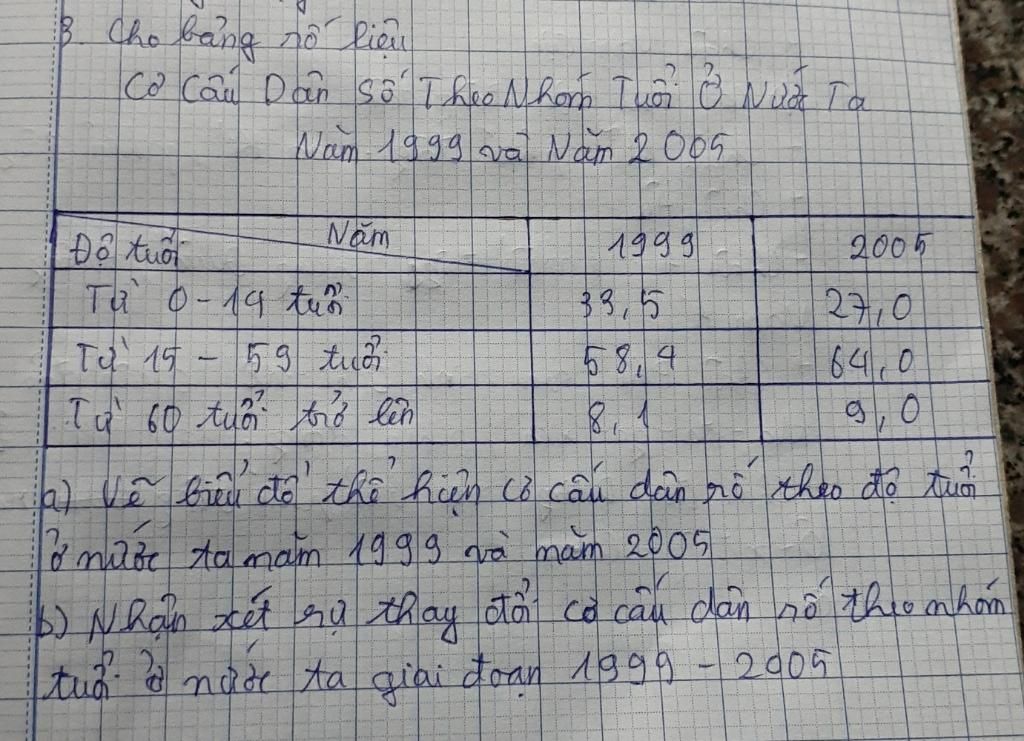 3. Cho bảng số liệu
Cơ Cấu Dân Số Theo Nhóm Tuổi Ở Nước Ta
Năm 1999 và Năm 2005
Năm
Độ tuổi 1999 2005
Từ 0-14 tuổi 33,5 27,0
Từ 15 - 59 tuổi 58,4 64,0
Từ 60 tuổi trở lên 8,1 9,0
a) Vẽ biểu đồ thể hiện cơ cấu dân số theo độ tuổi
ở nước ta năm 1999 và năm 2005
b) Nhận xét sự thay đổi cơ cấu dân số theo nhóm
tuổi ở nước ta giai đoạn 1999 - 2005